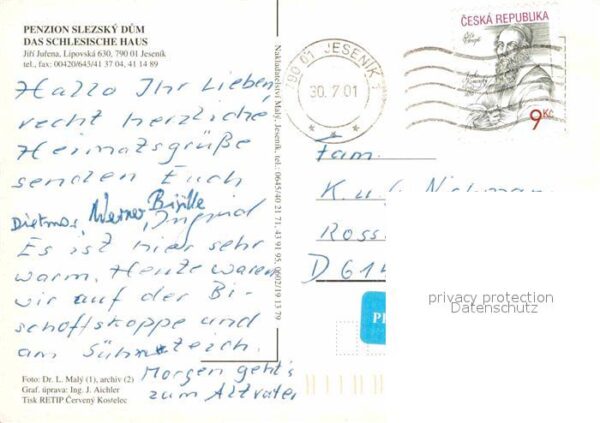 PENZION SLEZSKÝ DŮM
DAS SCHLESISCHE HAUS
Jiří Juřena, Lipovská 630, 790 01 Jeseník
tel., fax: 00420/645/41 37 04, 41 14 89
Hallo Ihr Lieben,
recht herzliche
Heimatsgrüße
senden Euch
Dietmar, Werner
Ingrid
Es ist hier sehr
warm. Heute waren
wir auf der Bi-
schoffskoppe und
am Sühneteich.
Morgen geht's
zum Altvater
Foto: Dr. L. Malý (1), archiv (2)
Graf. úprava: Ing. J. Aichler
Tisk RETIP Červený Kostelec
Nakladatelství Malý, Jeseník, tel.: 0645/40 21 71, 43 91 95, 0602/19 13 79
790 01 JESENÍK 1
30.7.01
ČESKÁ REPUBLIKA
9 Kč
Fam.
K. u.
Ross
D 614
privacy protection
Datenschutz